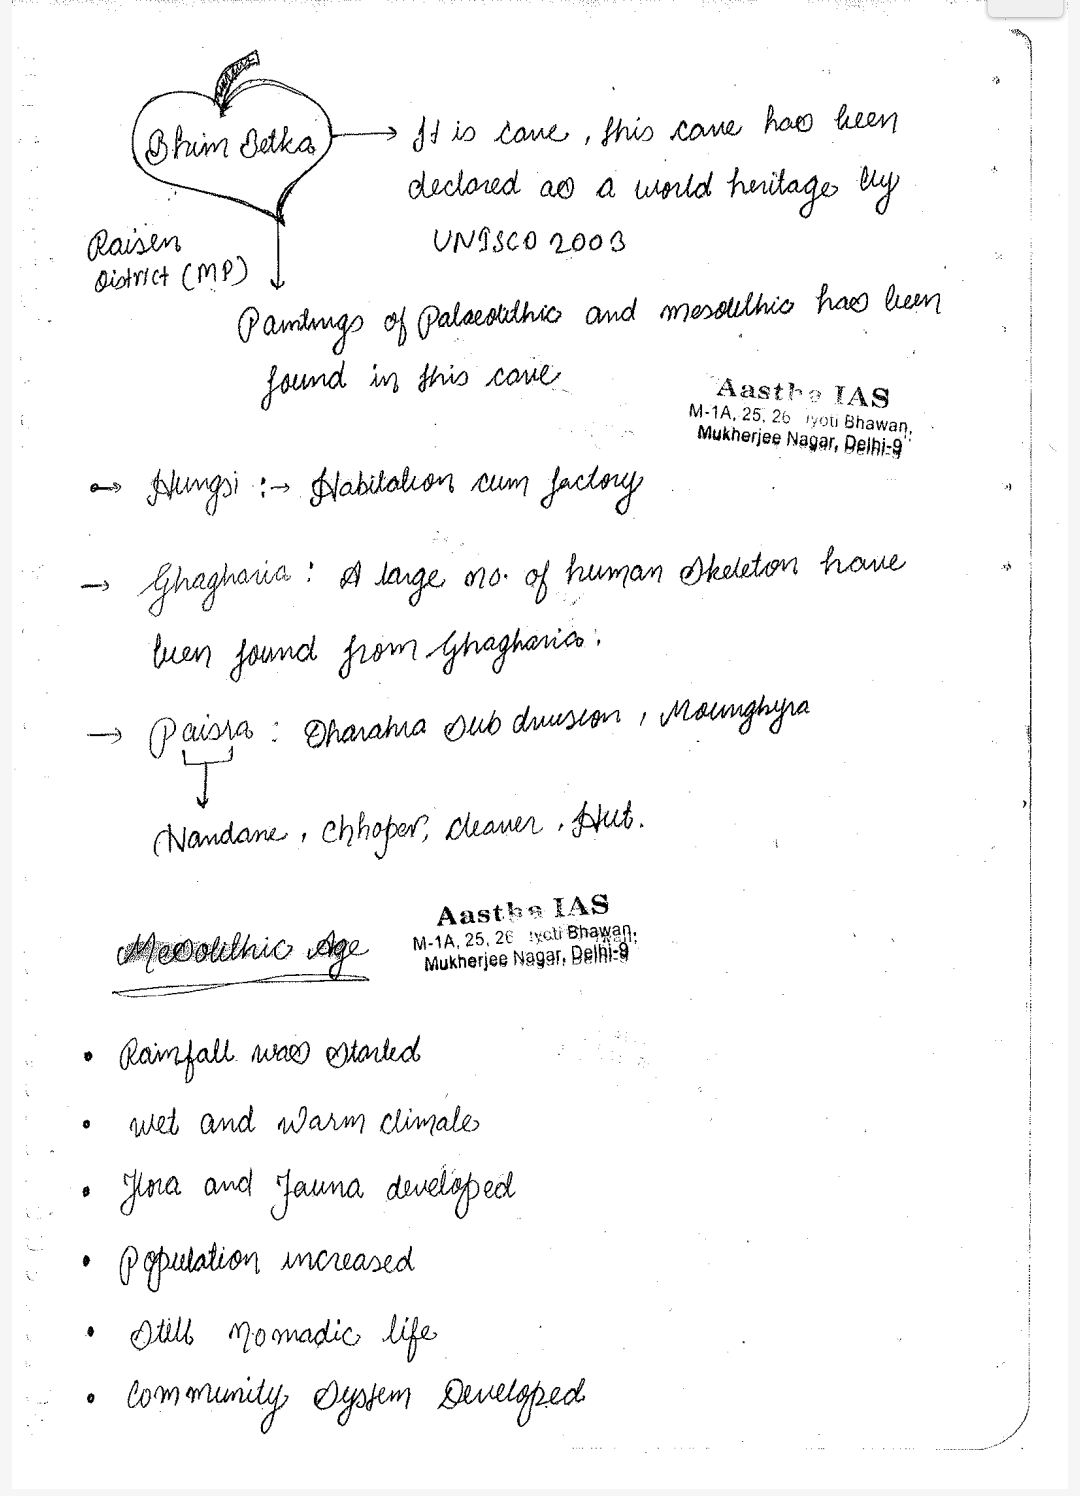 Bhim Betka → It is cave, this cave has been
declared as a world heritage by
UNISCO 2003
Raisen
District (MP)
Paintings of Palaeolithic and mesolithic has been
found in this cave
Aastha IAS
M-1A, 25, 26 Jyoti Bhawan,
Mukherjee Nagar, Delhi-9
→ Hungsi :→ Habitation cum factory
→ Ghagharia : A large no. of human skeleton have
been found from Ghagharia.
→ Paisra : Dharahra Sub division, Mounghyra
Handaxe, Chhoper, cleaver, Hut.
Aastha IAS
M-1A, 25, 26 Jyoti Bhawan,
Mukherjee Nagar, Delhi-9
Mesolithic Age
• Rainfall was started
• wet and warm climate
• Flora and Fauna developed
• Population increased
• Still nomadic life
• Community System Developed